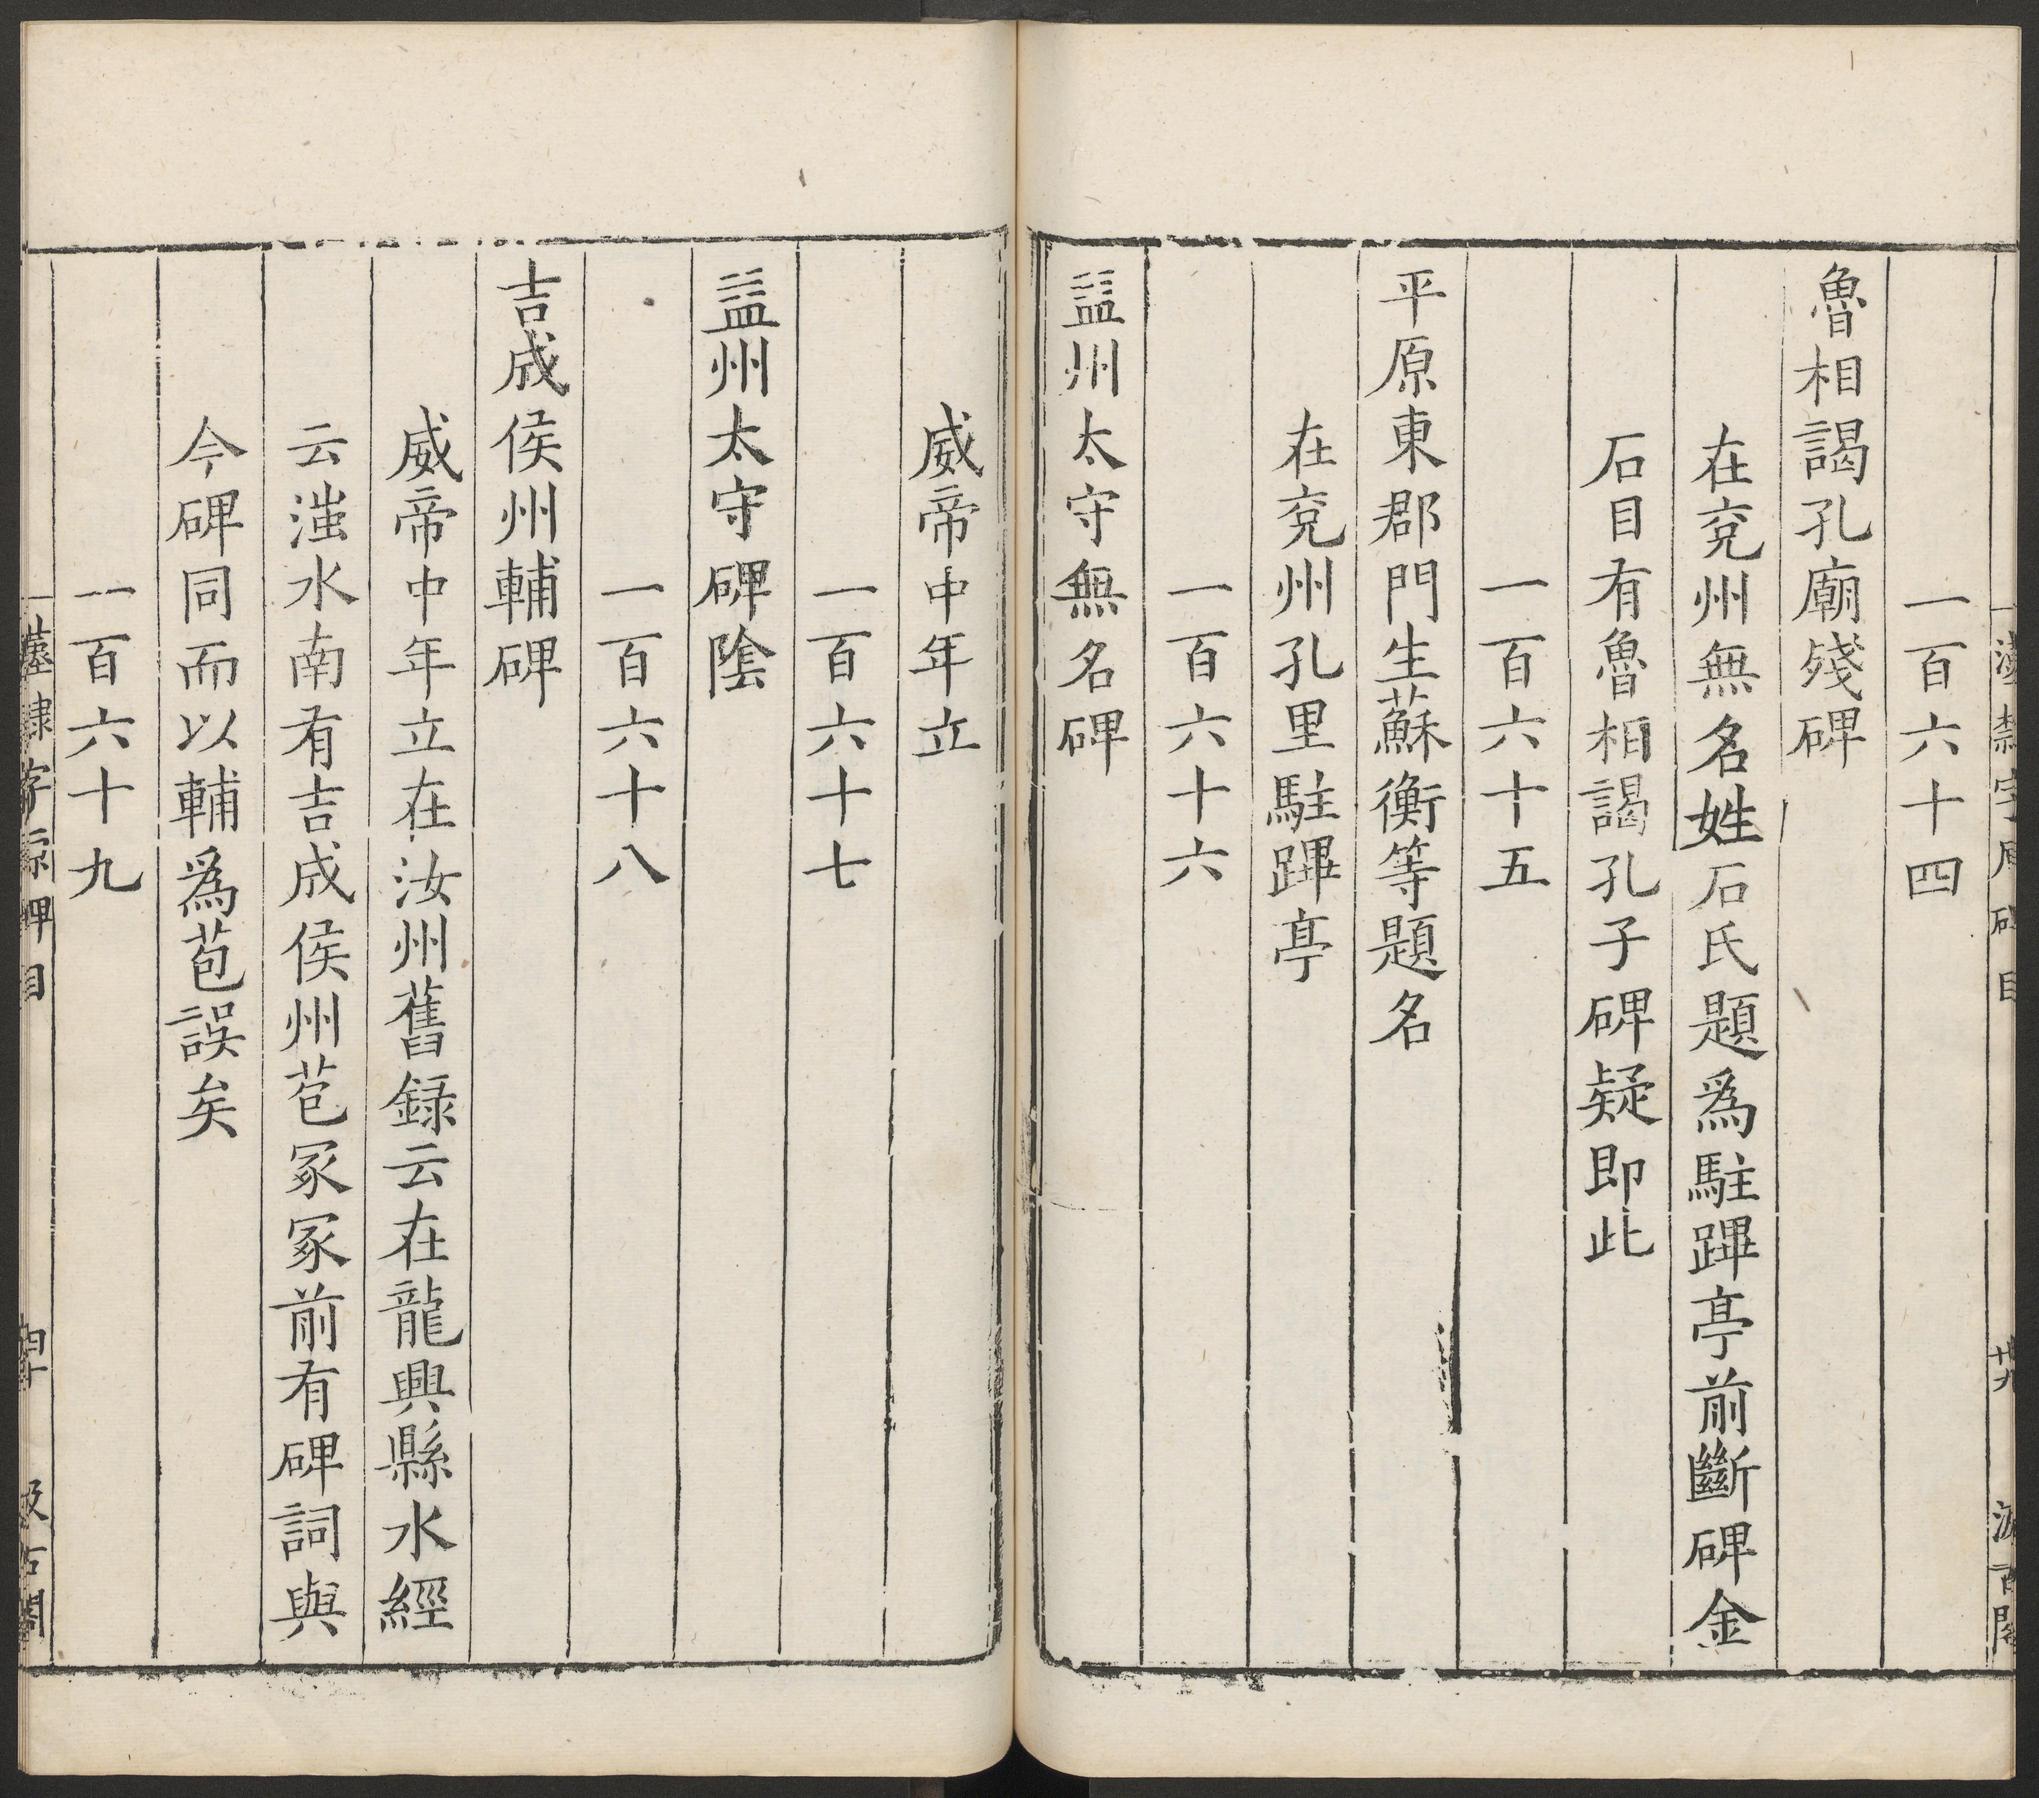 一百六十四
魯相謁孔廟殘碑
在兖州無名姓石氏題爲駐蹕亭前斷碑金
石目有魯相謁孔子碑疑即此
一百六十五
平原東郡門生蘇衡等題名
在兖州孔里駐蹕亭
一百六十六
益州太守無名碑
威帝中年立
一百六十七
益州太守碑陰
一百六十八
吉成侯州輔碑
威帝中年立在汝州舊録云在龍興縣水經
云滍水南有吉成侯州苞冢冢前有碑詞與
今碑同而以輔爲苞誤矣
一百六十九